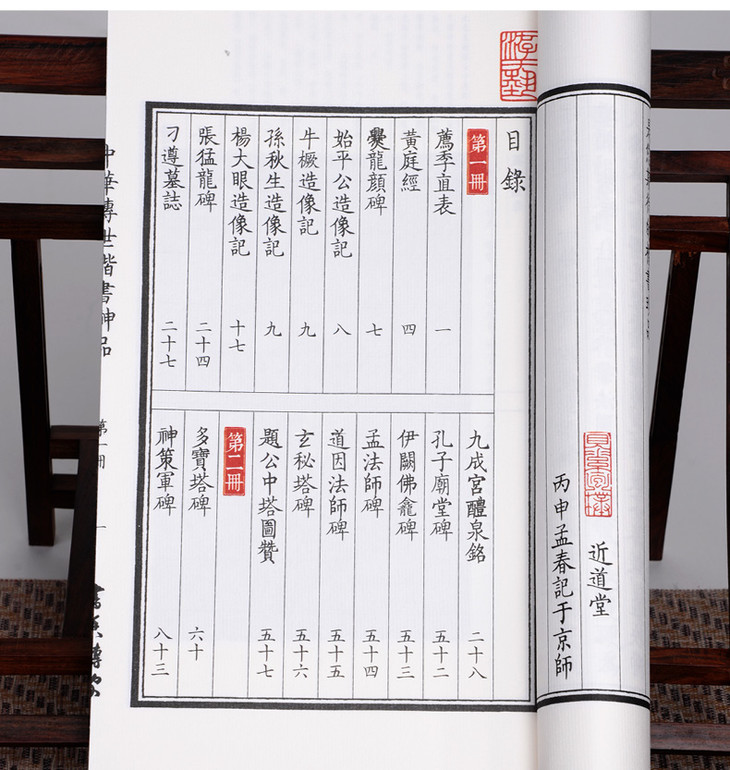 近道堂
丙申孟春記于京師
目錄
第一冊
薦季直表 一
黃庭經 四
爨龍顏碑 七
始平公造像記 八
牛橛造像記 九
孫秋生造像記 九
楊大眼造像記 十七
張猛龍碑 二十四
刁遵墓誌 二十七
九成宮醴泉銘 二十八
孔子廟堂碑 五十二
伊闕佛龕碑 五十三
孟法師碑 五十四
道因法師碑 五十五
玄秘塔碑 五十六
題公中塔圖贊 五十七
第二冊
多寶塔碑 六十
神策軍碑 八十三
中華傳世楷書神品
第一冊
一